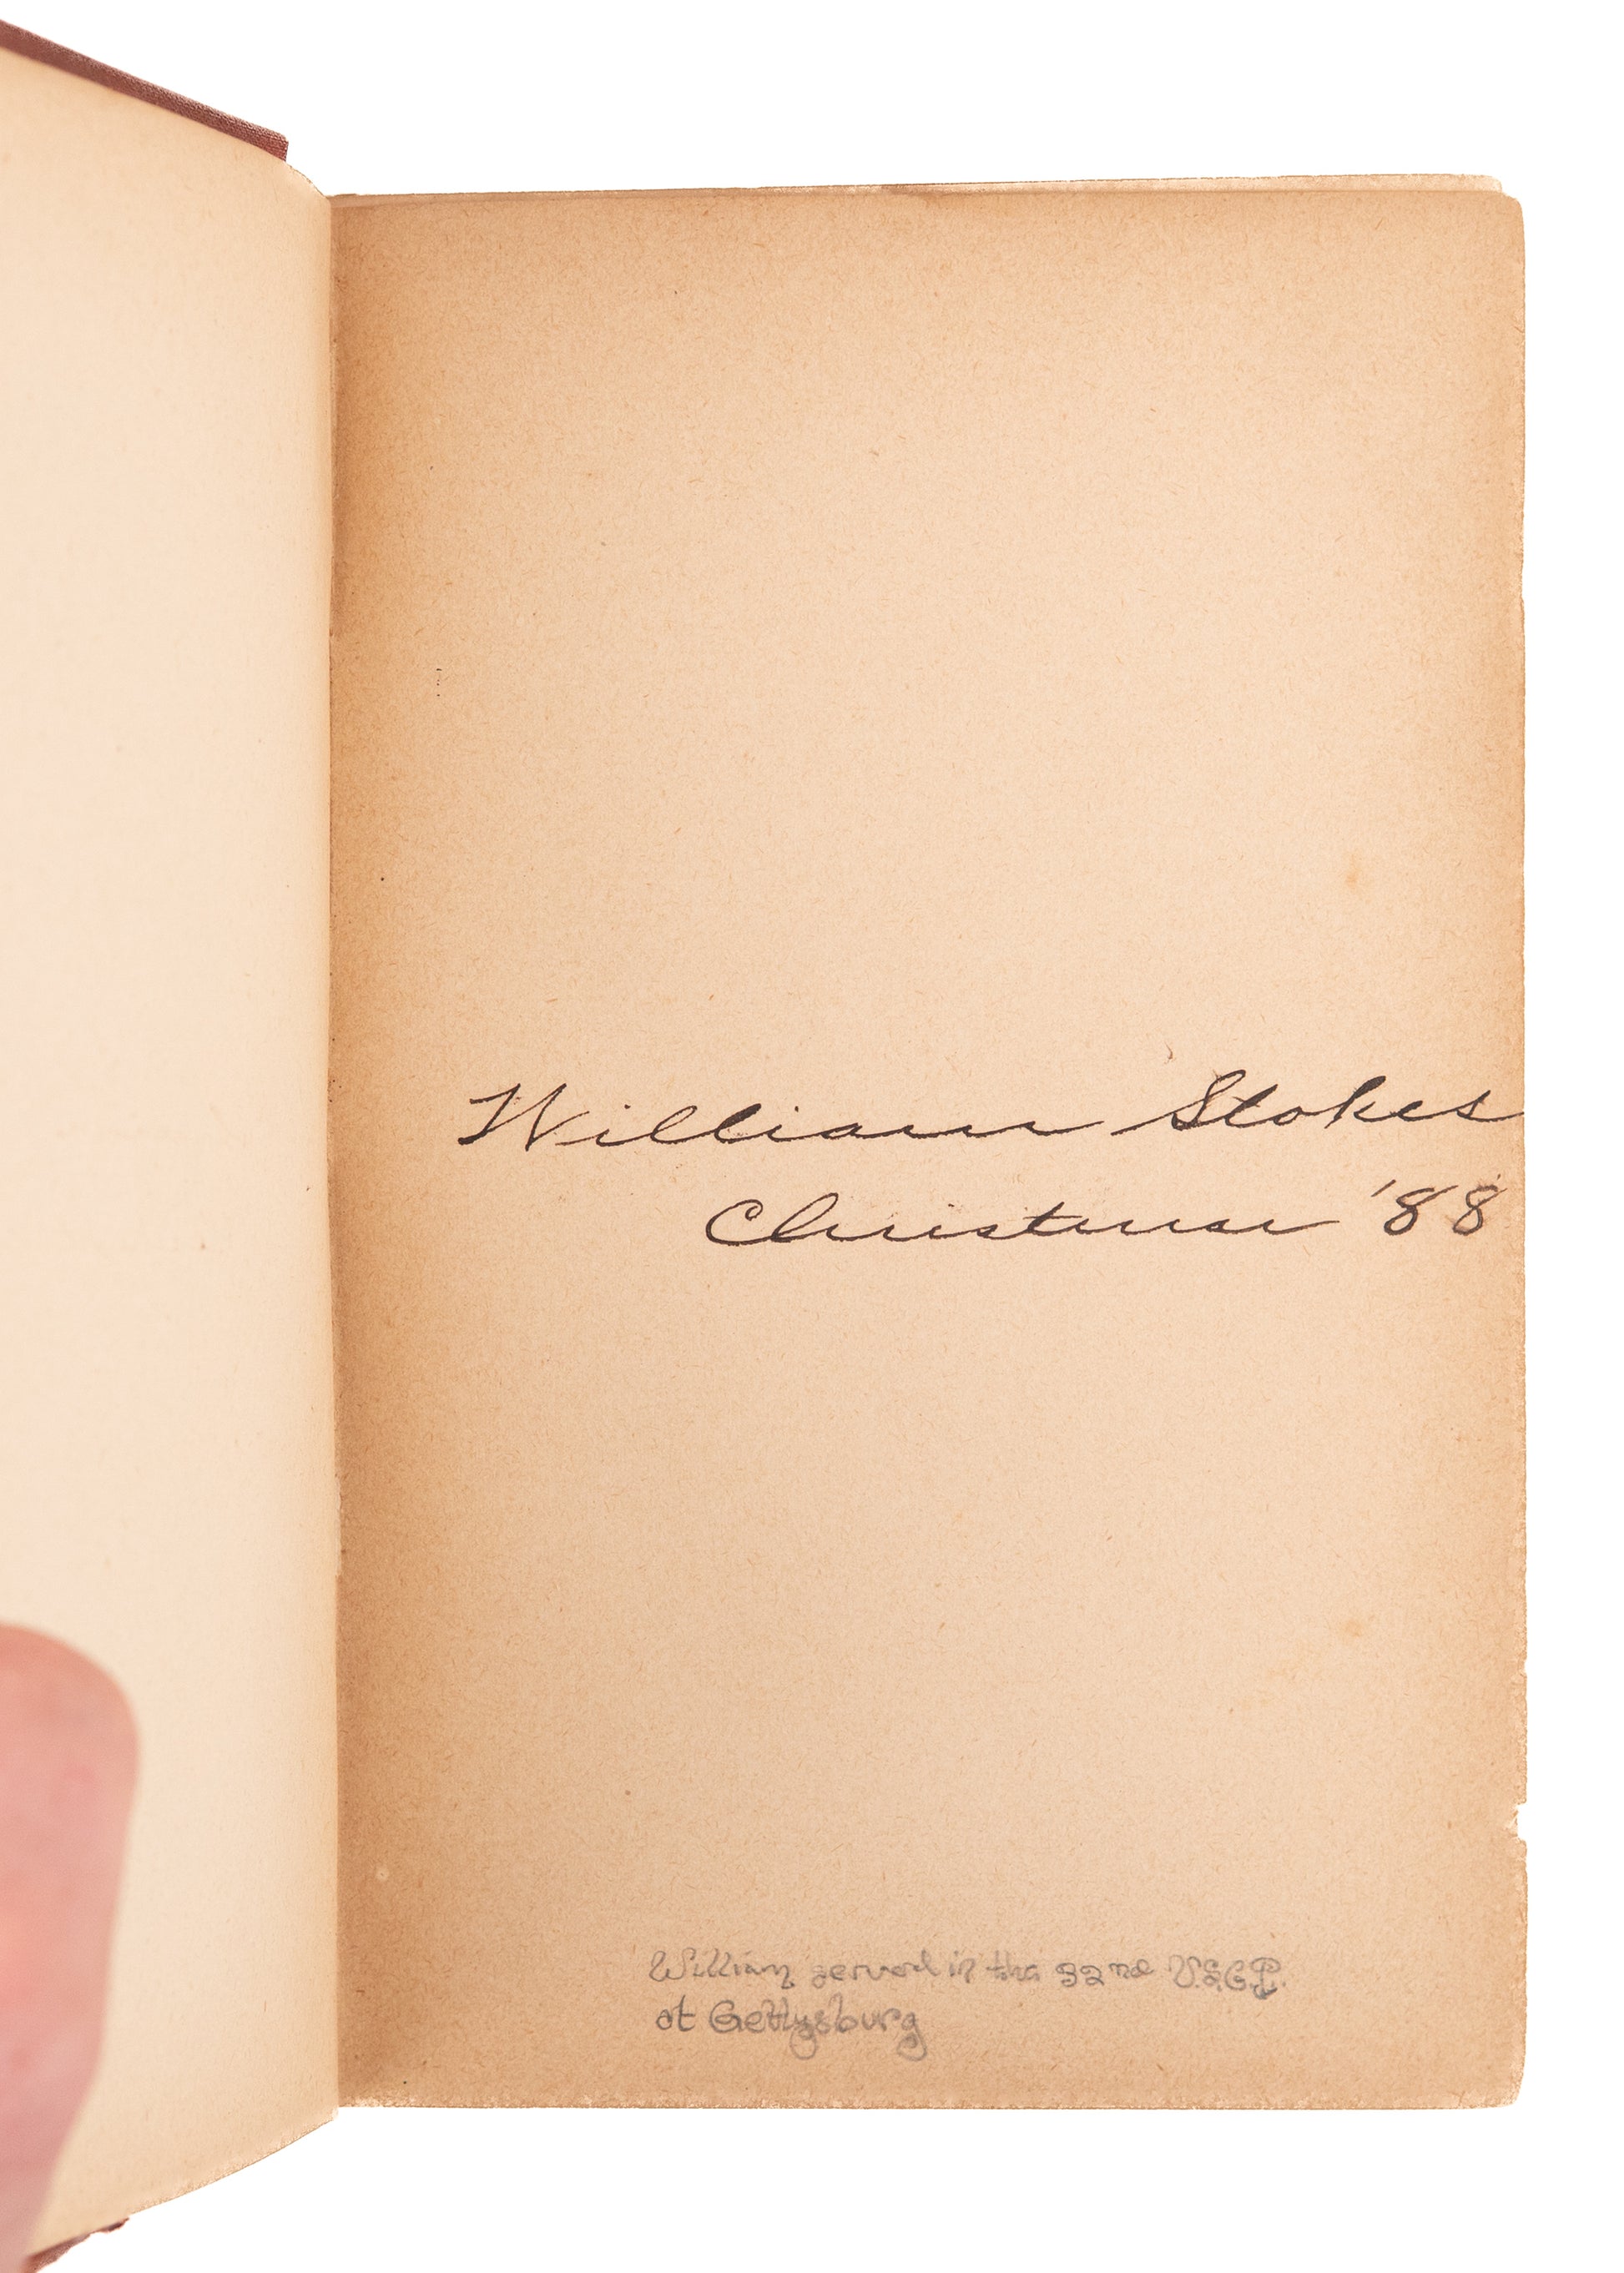 William Stokes
Christmas '88
William served in the 32nd U.S.C.T.
at Gettysburg